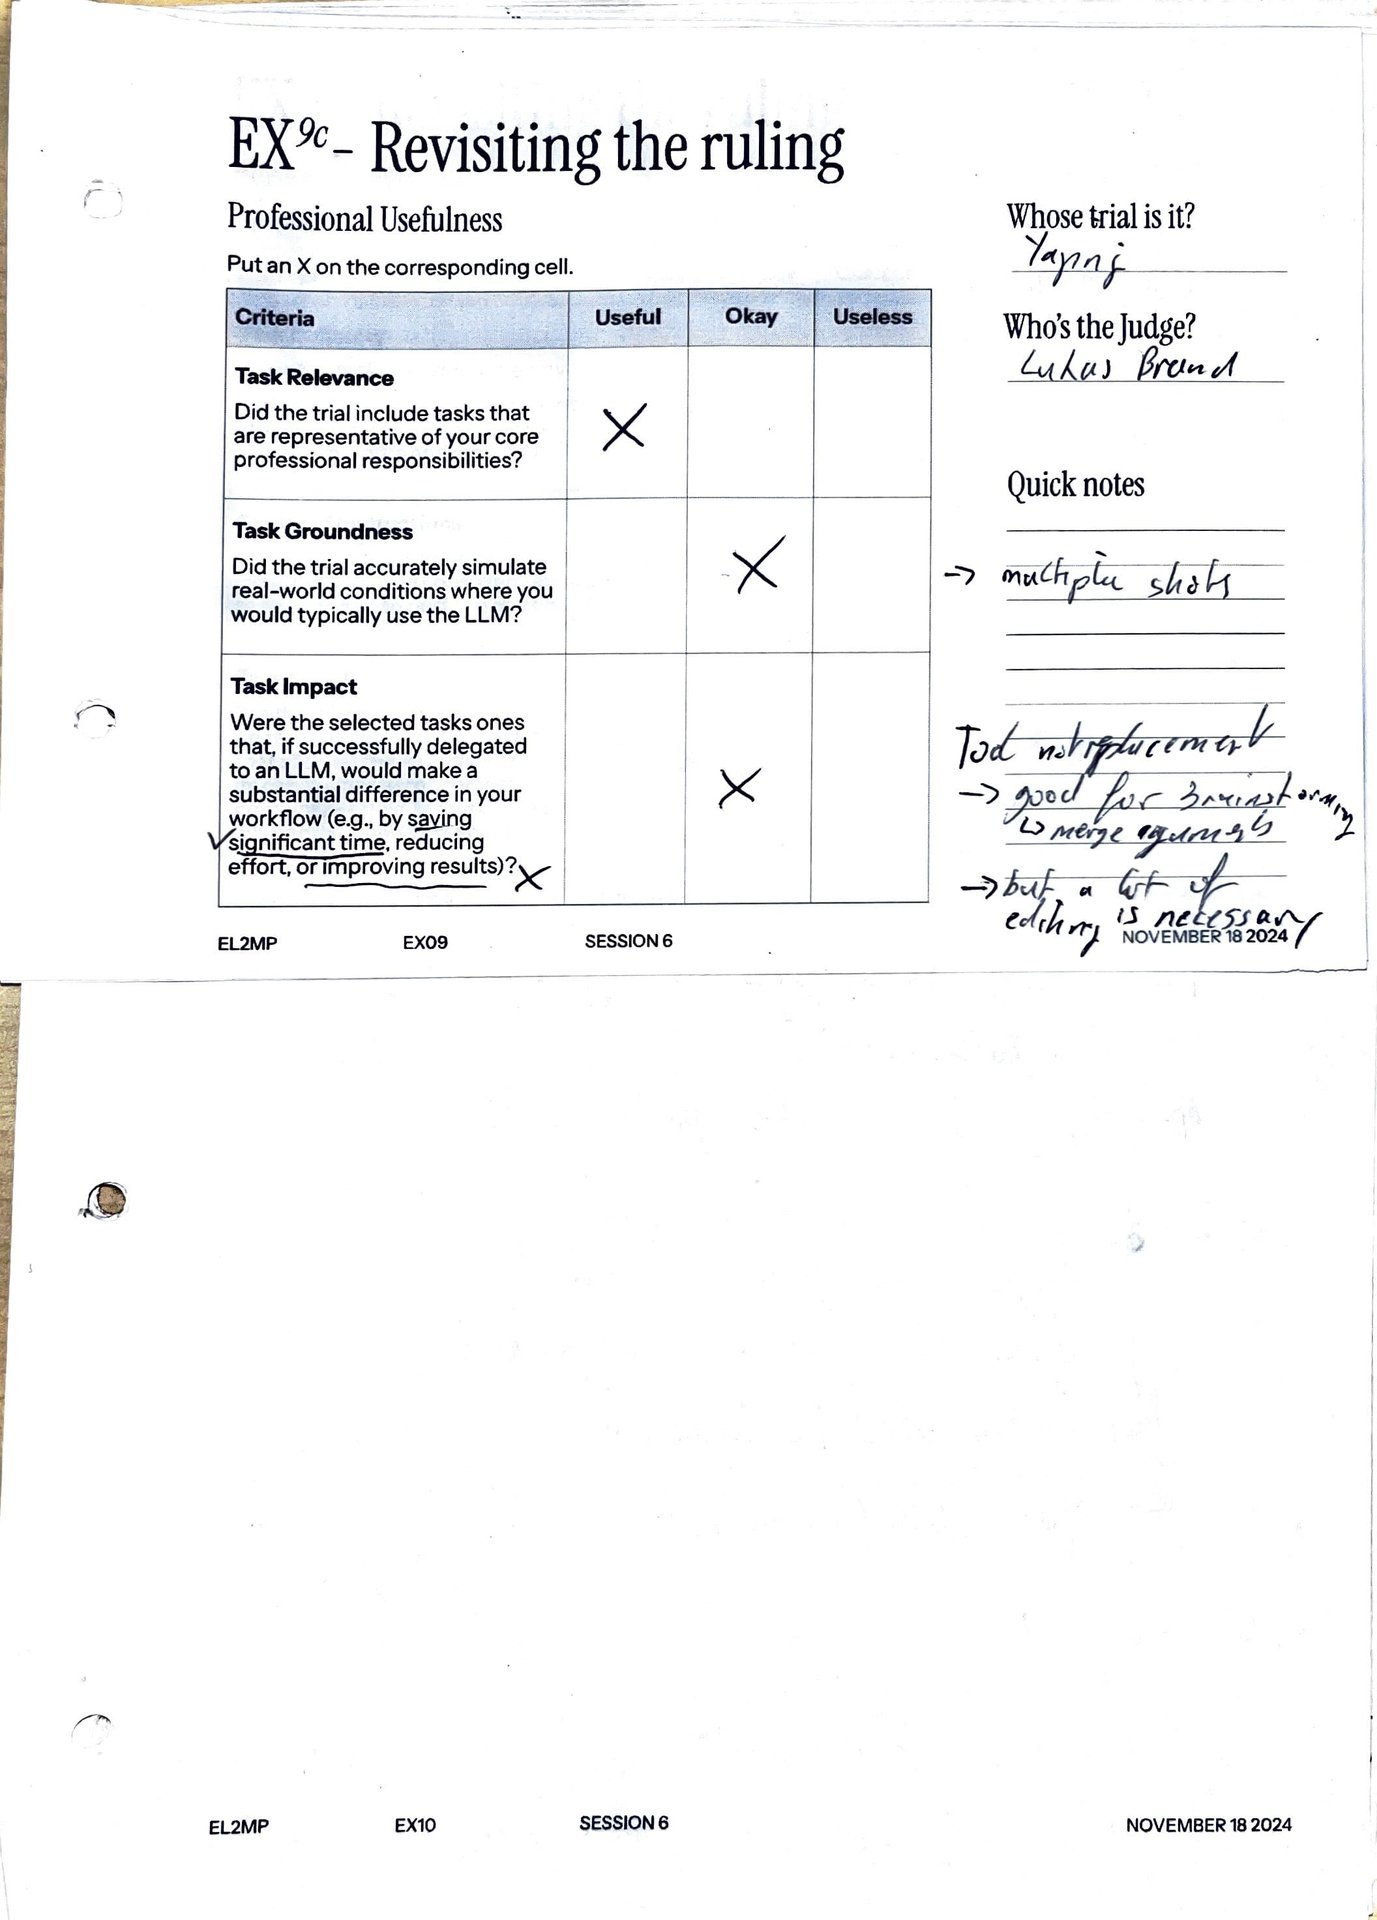 EX9c – Revisiting the ruling
Professional Usefulness
Put an X on the corresponding cell.
Criteria Useful Okay Useless
Task Relevance
Did the trial include tasks that
are representative of your core
professional responsibilities?
X
Task Groundness
Did the trial accurately simulate
real-world conditions where you
would typically use the LLM?
X
Task Impact
Were the selected tasks ones
that, if successfully delegated
to an LLM, would make a
substantial difference in your
workflow (e.g., by saving
✓significant time, reducing
effort, or improving results)? X
X
Whose trial is it?
Who's the Judge?
Lukas Brand
Quick notes
→ multiple shots
Tool not replacement
→ good for Brainstorming
↳ merge arguments
→ but a lot of
editing is necessary
EL2MP EX09 SESSION 6 NOVEMBER 18 2024
EL2MP EX10 SESSION 6 NOVEMBER 18 2024